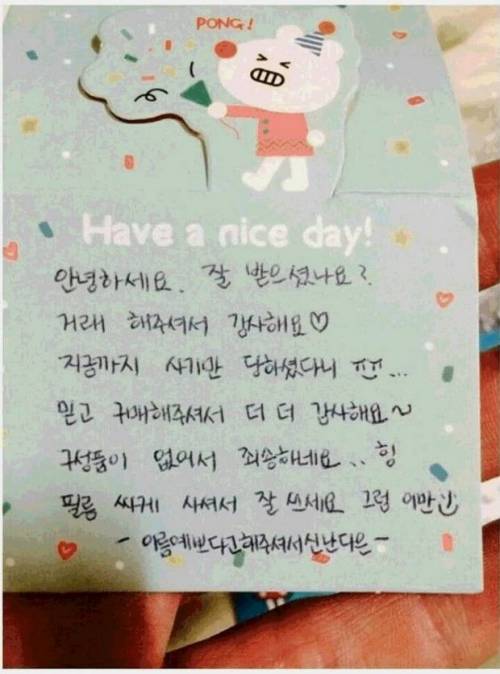 PONG!
Have a nice day!
안녕하세요. 잘 받으셨나요?
거래 해주셔서 감사해요♡
지금까지 사기만 당하셨다니 ㅠㅠ...
믿고 구매해주셔서 더 더 감사해요~
구성품이 없어서 죄송하네요.. 힝
필름 싸게 사셔서 잘 쓰세요 그럼 이만
- 이름예쁘다고해주셔서신난다은 -